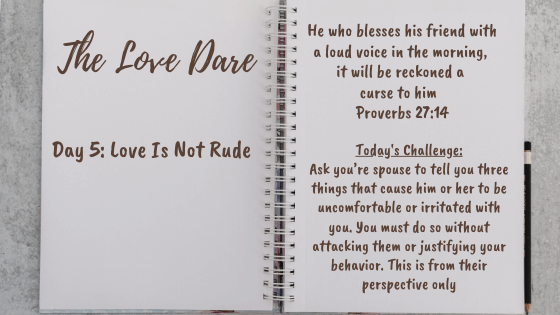 The Love Dare
Day 5: Love Is Not Rude
He who blesses his friend with
a loud voice in the morning,
it will be reckoned a
curse to him
Proverbs 27:14
Today's Challenge:
Ask you're spouse to tell you three
things that cause him or her to be
uncomfortable or irritated with
you. You must do so without
attacking them or justifying your
behavior. This is from their
perspective only